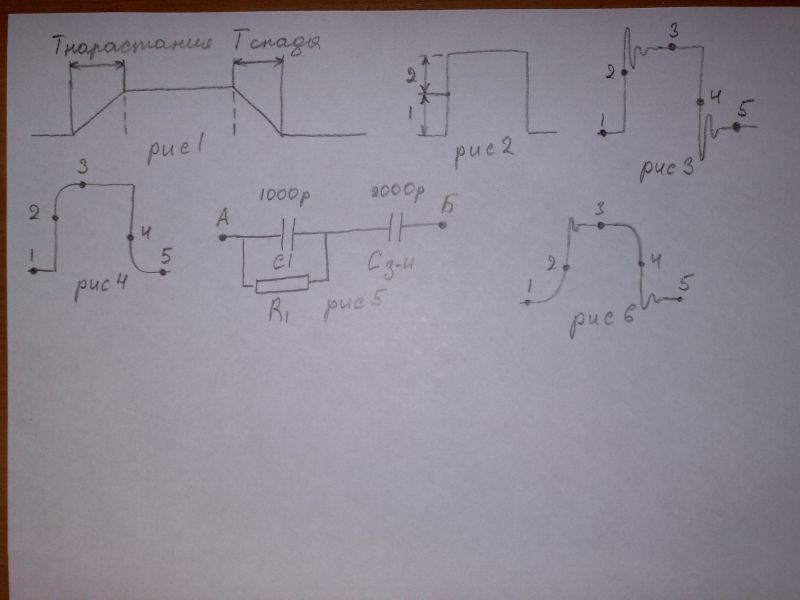 Тнарастания Тспады
рис 1
2
1
рис 2
1
2
3
4
5
рис 3
1
2
3
4
5
рис 4
1000p 2000p
А Б
C1 Cз-и
R1
рис 5
1
2
3
4
5
рис 6